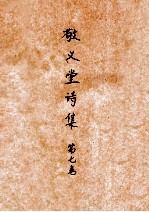 敬义堂诗集
第七卷